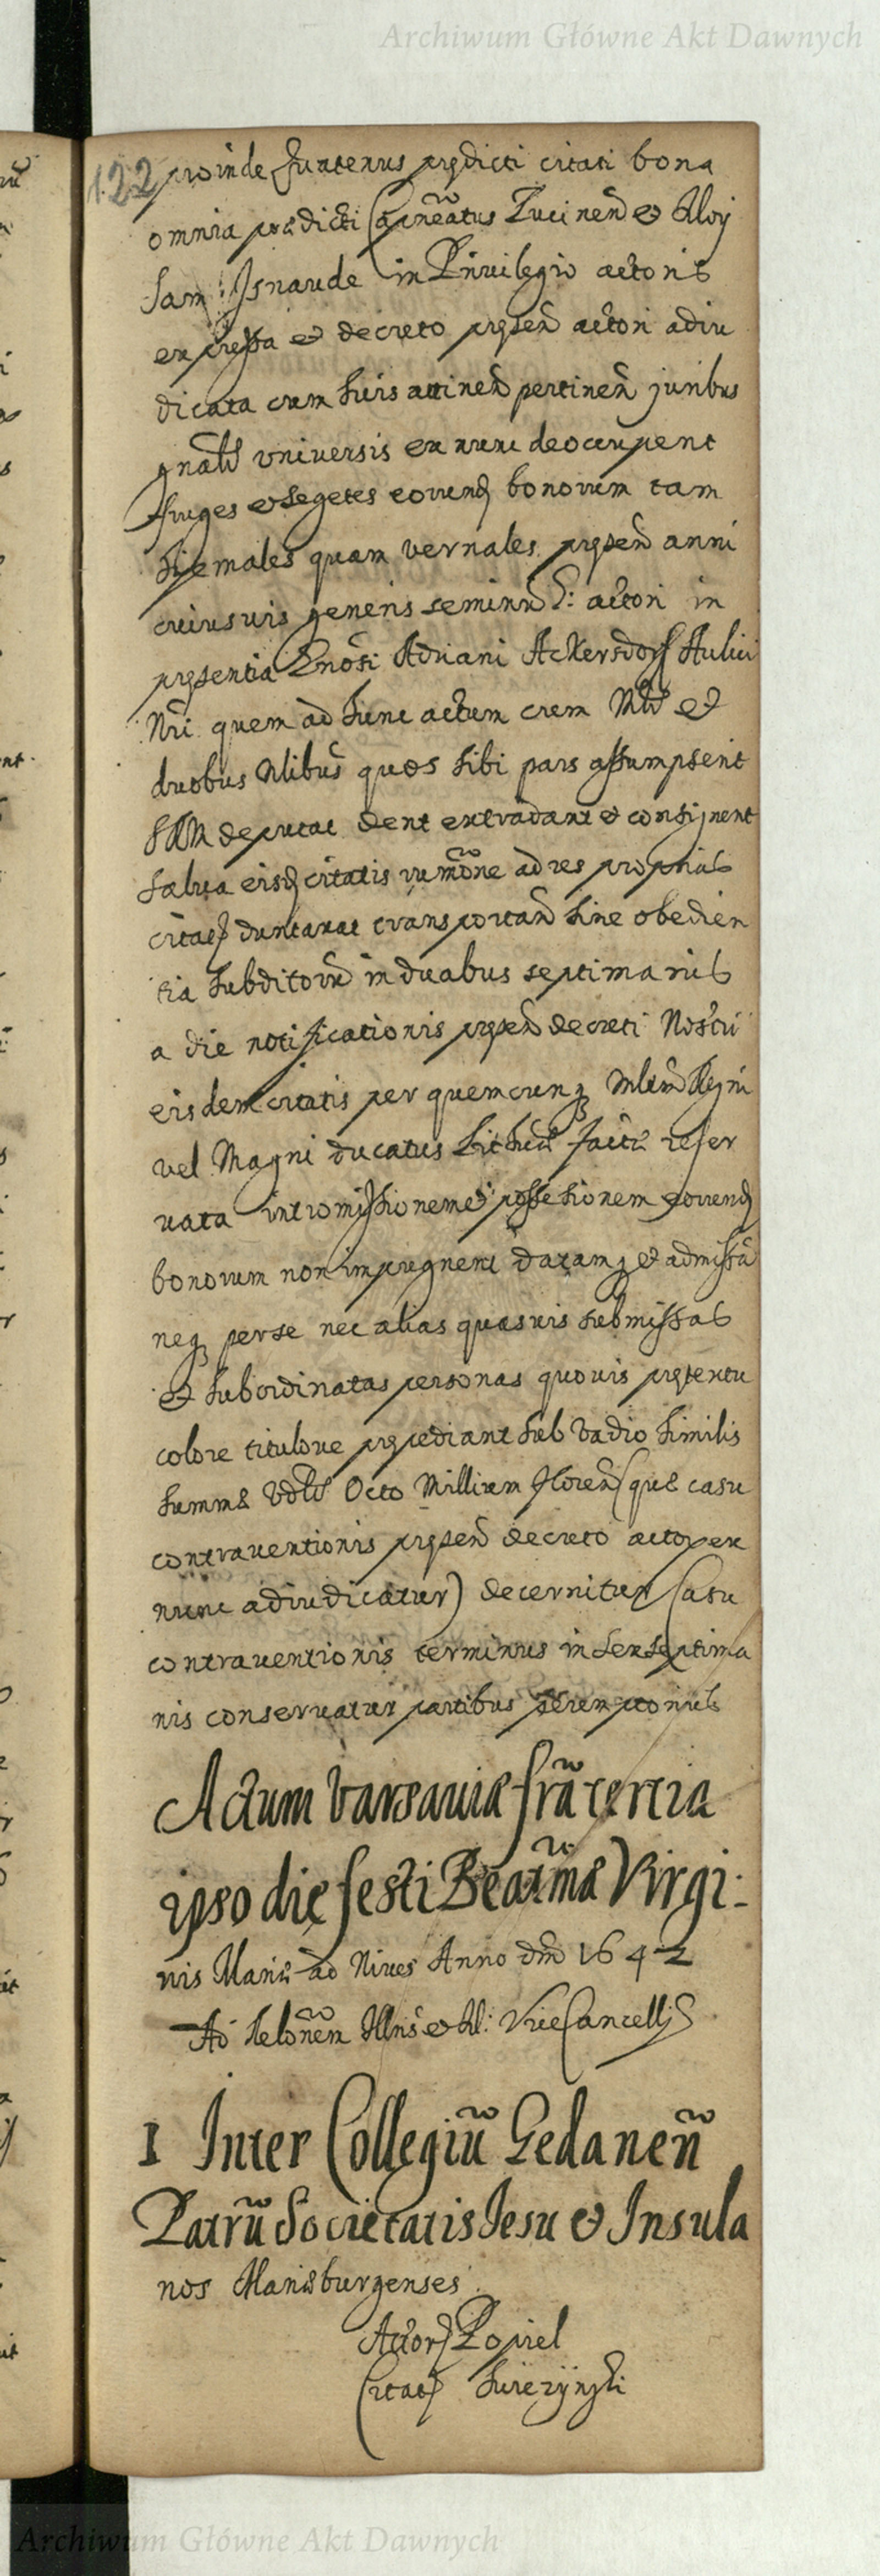 Archiwum Główne Akt Dawnych
122 proinde quatenus prędicti citati bona
omnia prædicti Capneatus Lucinen̄ & Aloy
Sam Isnarde in Privilegio actoris
expressa et decreto pręsen̄ actori adiu
dicata cum suis attinen̄ pertinen̄ juribus
gnal̄r vniuersis ex nunc deoccupent
fruges & segetes eorund bonorum tam
hiemales quam vernales pręsen̄ anni
cuiusuis generis semin actori in
pręsentia Gnosi Adriani Ackersdorf Aulici
Nr̄i quem ad hunc actum cum et
duobus Nlibus quos sibi pars assumpserit
deputat dent extradant & consignent
salua eisd citatis ad res proprias
citat duntaxat transportan̄ sine obedien
tia subditorū in duabus septimanis
a die notificationis pręsen̄ decreti Nostri
eisdem citatis per quemcunq Regni
vel Magni ducatus Lithu factæ reser
uata intromissionem & possessionem eorund
bonorum non impugnent datamq & admissā
neq per se nec alias quasuis submissas
et subordinatas personas quouis pretextu
colore titulove pręediant sub vadio similis
summæ Octo Millium floren̄ (quæ casu
contrauentionis pręsen̄ decreto actor ex
nunc adiudicatur) decernitur Casu
contrauentionis terminus in sex septima
nis conseruatur partibus peremptorius
Actum Varsaviæ fr̄a tertia
ipso die festi Beatmæ Virgi:
nis Mariæ ad Niues Anno dn̄i 1642
Ad Relōnem Illris & R: ViceCancell
1 Inter Collegiū Gedanen̄
Patrū Societatis Iesu & Insula
nos Mariæburgenses
Actor Popiel
Citat Swiezynski
Archiwum Główne Akt Dawnych